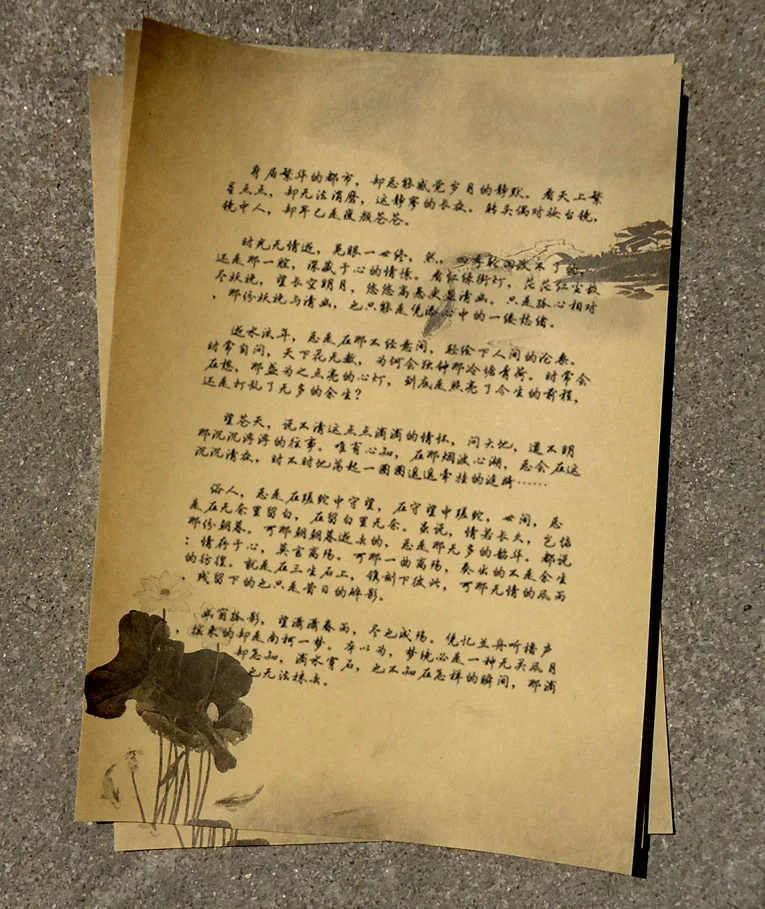 身居繁华的都市，却总能感觉岁月的静默。看天上繁
星点点，却无法消磨，这静寧的长夜。转头偶对妆台镜，
镜中人，却早已是疲颜苍苍。
时光无情逝，晃眼一世终，然，四季轮回改不了沉，
还是那一腔，深藏于心的情愫。看红绿街灯，茫茫红尘较
尽妖娆，望长空明月，悠悠高悬更显清幽。只是孤心相对
，那份妖娆与清幽，也只能是凭添心中的一缕愁绪。
逝水流年，总是在那不经意间，轻绘下人间的沧桑。
时常自问，天下花无数，为何会独钟那冷塘青荷。时常会
在想，那盏为之点亮的心灯，到底是照亮了今生的前程，
还是打乱了无多的余生？
望苍天，说不清这点点滴滴的情怀，问大地，道不明
那沉沉浮浮的往事。唯有心知，在那烟波心湖，总会在这
沉沉清夜，时不时地荡起一圈圈退退牵挂的涟漪……
俗人，总是在蹉跎中守望，在守望中蹉跎，世间，总
是在无奈里留白，在留白里无奈。虽说，情若长久，乞惦
那份朝暮。可那朝朝暮逝去的，总是那无多的韶华。都说
：情存于心，莫言离殇。可那一曲离殇，奏出的不是余生
的彷徨。就是在三生石上，镌刻下彼此，可那无情的风雨
，残留下的也只是昔日的碎影。
幽窗孤影，望满满春雨，尽也成殇。凭忆兰舟听橹声
，摇来的却是南柯一梦。本以为，梦境必是一种无关风月
却怎知，滴水穿石，也不知在怎样的瞬间，那滴
也无法抹去。